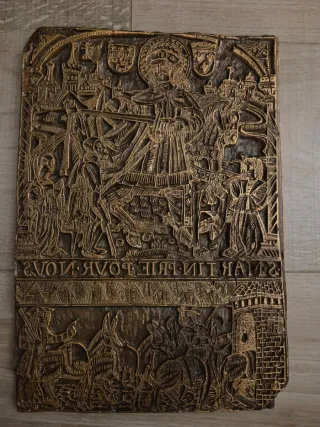 S MARTIN PRIE POVR NOVS